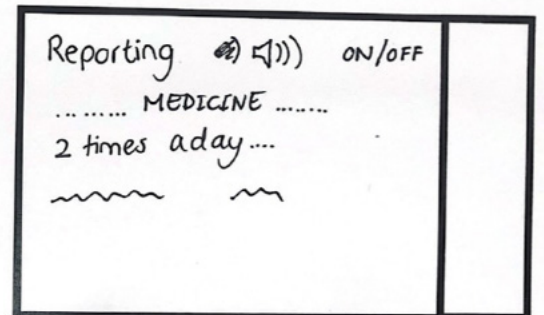 Reporting ON/OFF
... ... MEDICINE .......
2 times aday....